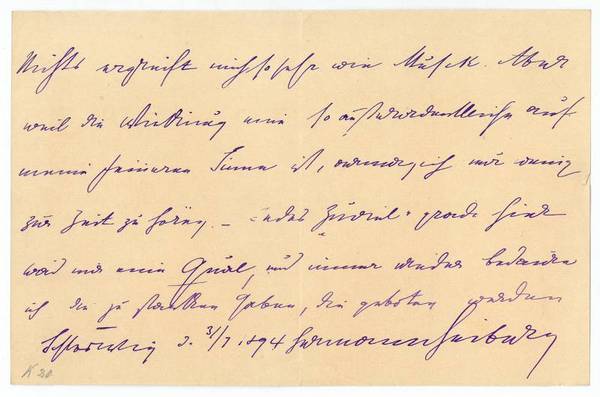 Nichts ergreift mich so sehr wie Musik. Aber
weil die Wirkung eine so außerordentliche auf
meine feineren Sinne ist, vermag ich nur wenig
zur Zeit zu hören. – Jedes Zuviel grade hier
wird mir eine Qual, und immer wieder bedaure
ich die zu starken Gaben, die geboten werden
Schleswig d. 3/7. 894 Hermann Heiberg
K 20